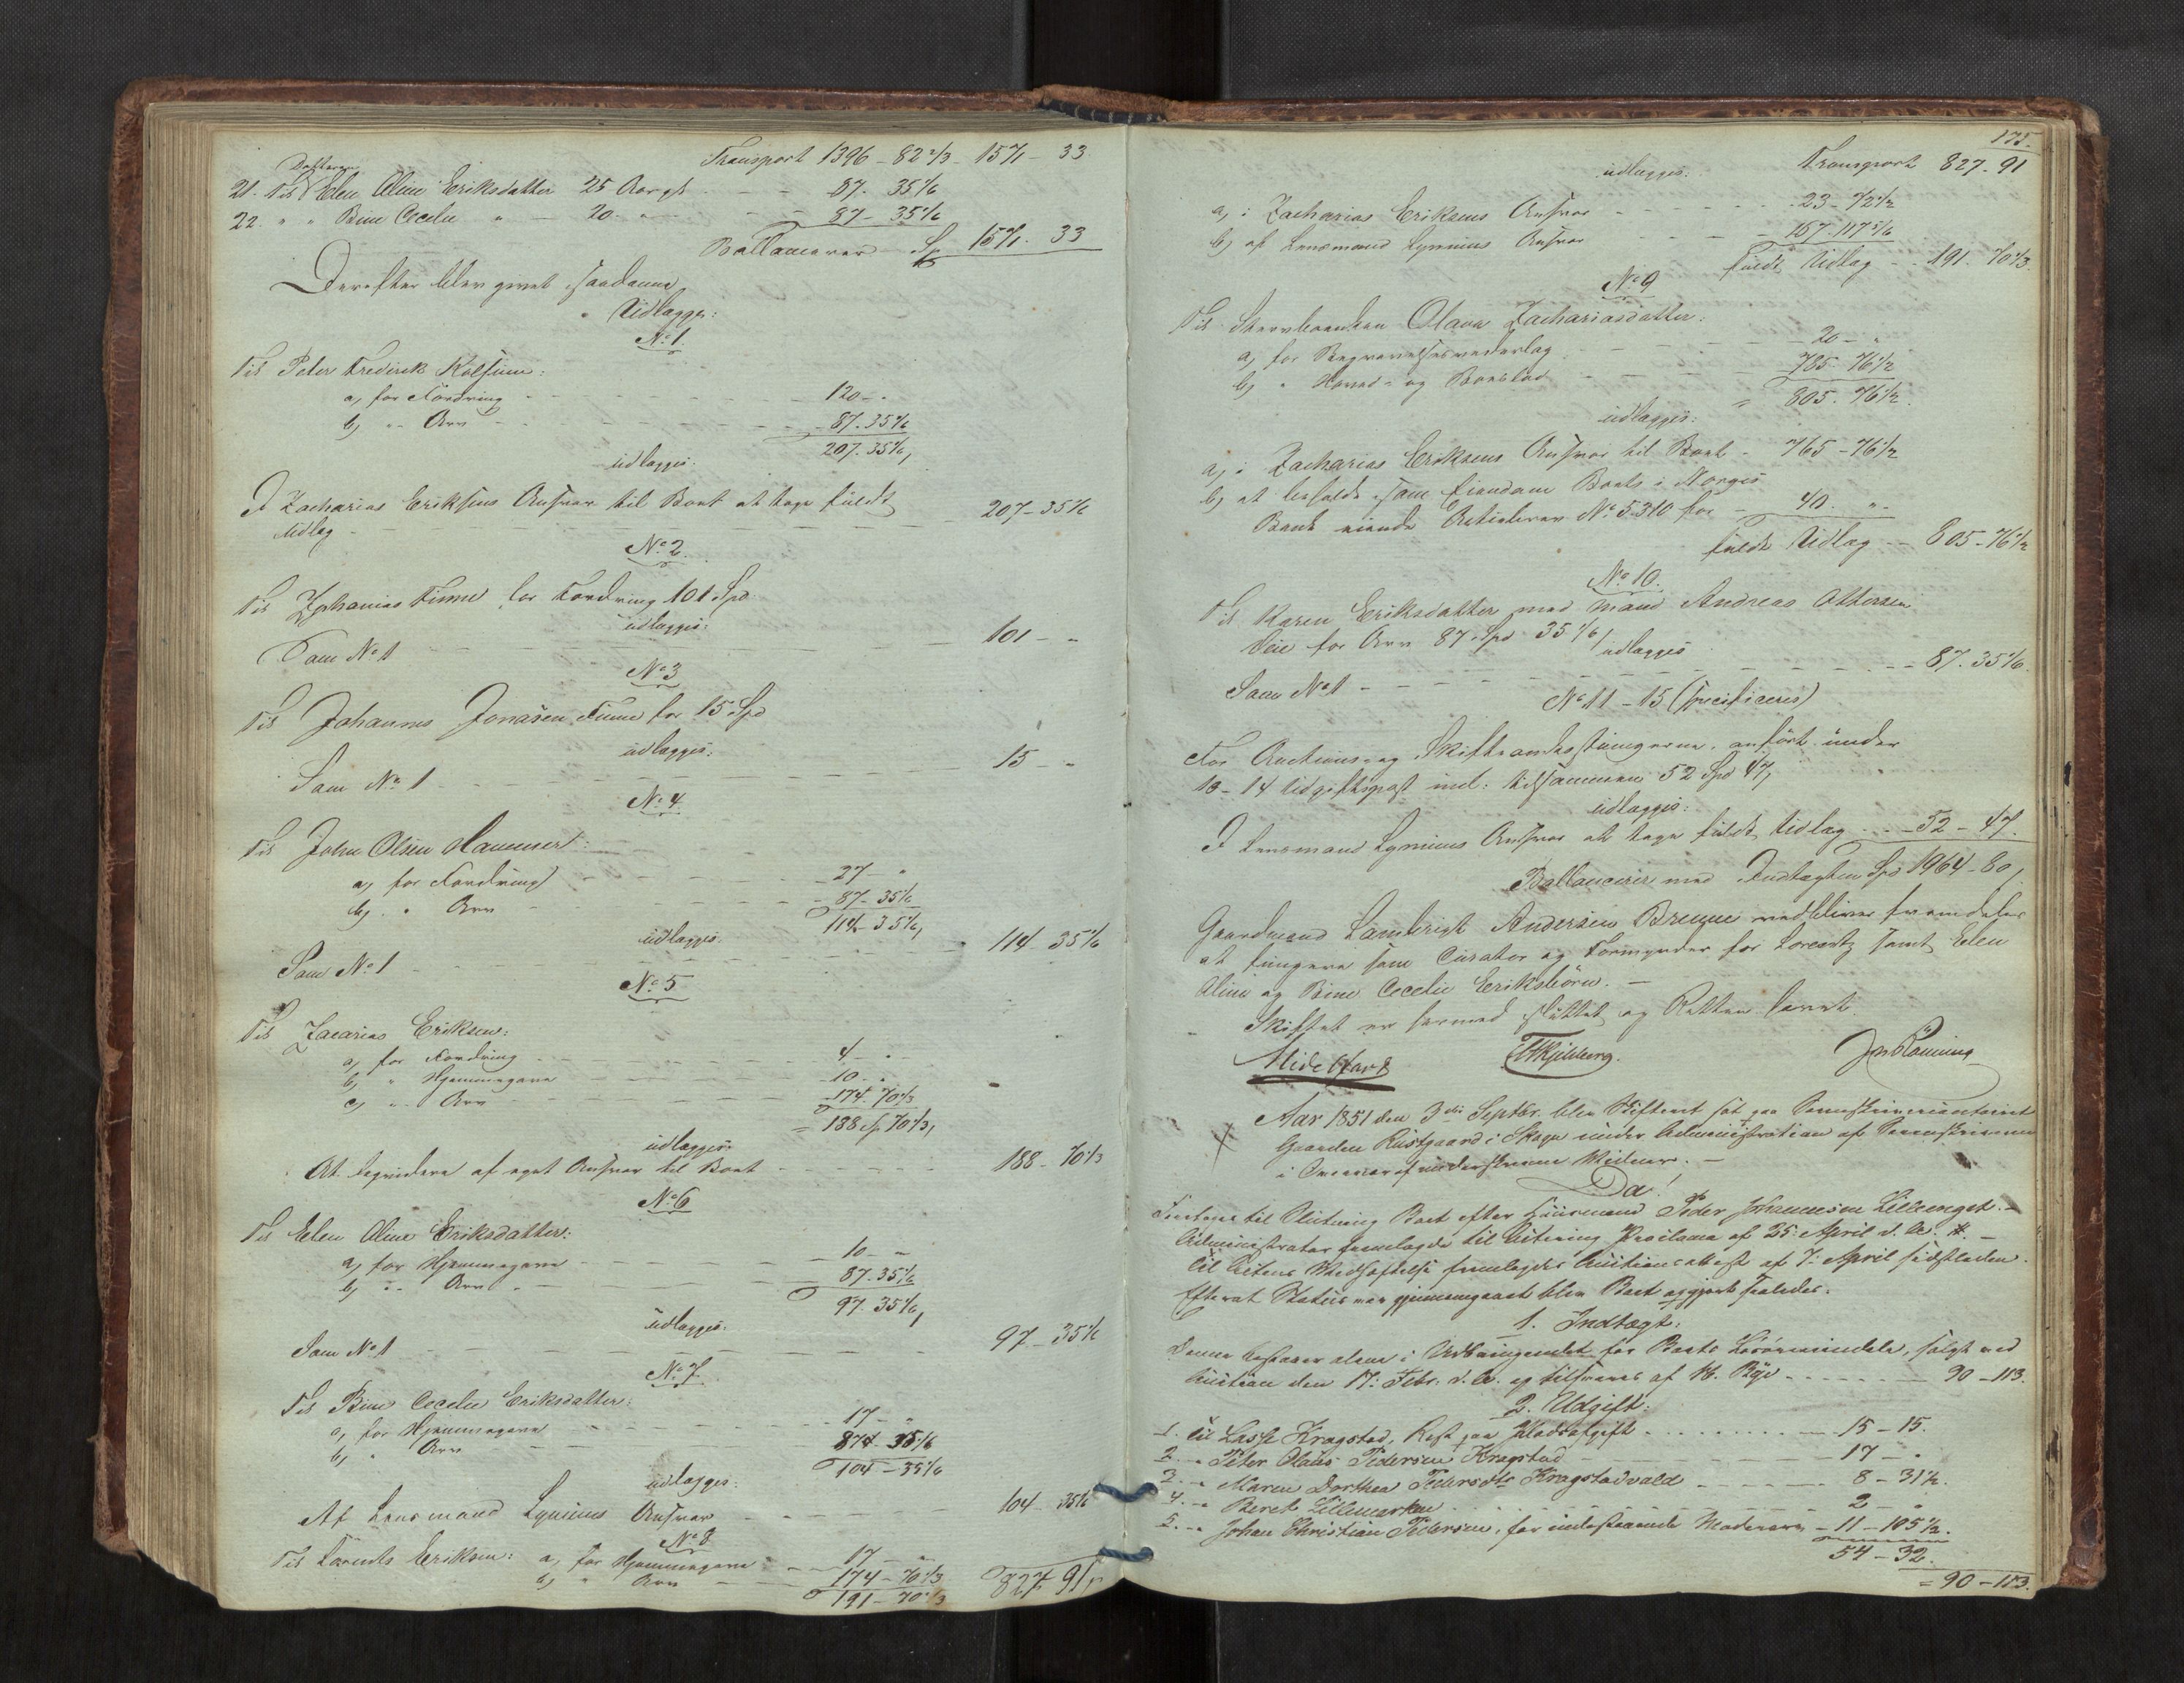 Transport 1396 - 82 2/3 - 1571 - 33
Datteren
21. Til Elen Aline Eriksdatter 25 Aar gl - - 87. 35 1/6
22. " " Bine Cecelie " - 20 " - - 87 - 35 1/6
Ballancerer Sp 1571. 33
Derefter blev givet saadanne
Udlægge:
No 1.
Til Peter Fredrik Kolsum:
a, for Fordring - - 120 - "
b, " Arv - - 87. 35 1/6
207. 35 1/6,
udlægges:
I Zacharias Eriksens Ansvar til Boet at tage fuldt
Udlæg - - 207 - 35 1/6
No 2.
Til Zphanias Finne for Fordring 101 Spd
udlægges:
Som No 1 - - 101 - "
No 3
Til Johannes Jonasen Finne for 15 Spd
udlægges:
Som No 1 - - 15 - "
No 4.
Til John Olsen Hammer:
a, for Fordring - - 27 - "
b, " Arv - - 87 - 35 1/6
114 - 35 1/6,
udlægges:
Som No 1 - - 114 - 35 1/6
No 5
Til Zacarias Eriksen:
a, for Fordring - - 4 - "
b, " Hjemmegave - - 10 - "
c, " Arv - - 174. 70 1/3
= 188 Sp 70 1/3,
udlægges:
At liqvidere af eget Ansvar til Boet - - 188 - 70 1/3
No 6
Til Elen Aline Eriksdatter:
a, for Hjemmegave - - 10 - "
b, " Arv - - 87. 35 1/6
97. 35 1/6,
udlægges:
Som No 1 - - 97 - 35 1/6
No 7.
Til Bine Cecelie Eriksdatter:
a, for Hjemmegave - - 17 - "
b, " Arv - - 87 - 35 1/6
104 - 35 1/6
udlægges:
Af Lensmand Lynums Ansvar - - 104 - 35 1/6
No 8
Til Lorents Eriksen: a, for Hjemmegave - - 17 - "
b, " Arv - - 174 - 70 1/3
191 - 70 1/3 827. 91,
175.
Transport 827. 91
udlægges:
a, i Zacharias Eriksens Ansvar - - 23 - 72 1/2
b, af Lensmand Lynums Ansvar - - 167. 117 5/6
fuldt Udlæg - - 191. 70 1/3
No 9
Til Stervboenken Olava Zachariasdatter:
a, for Begravelsesvederlag - - 20 - "
b, " Hoved- og Boeslod - - 785. 76 1/2
= 805. 76 1/2
udlægges:
a, i Zacharias Eriksens Ansvar til Boet - 765 - 76 1/2
b, at beholde som Eiendom Boets i Norges
Bank eiende Actiebrev No 5310 for - 40. "
fuldt Udlæg - - 805 - 76 1/2
No 10.
Til Karen Eriksdatter med Mand Andreas Ottersen
Veie for Arv 87 Spd 35 1/6
udlægges
Som No 1 - - 87. 35 1/6
No 11 - 15 (specificeres)
For Auctions- og Skifteomkostningerne, anført under
10 - 14 Udgiftspost incl: tilsammen 52 Spd 47,
udlægges:
I Lensmand Lynums Ansvar at tage fuldt Udlæg - - 52 - 47.
Ballancerer med Indtægten Spd 1964 - 80,
Gaardmand Lambrigt Andersen Brenne vedbliver fremdeles
at fungere som Curator og Formynder for Lorentz samt Elen
Aline og Bine Cecelie Eriksbørn. -
Skiftet er hermed sluttet og Retten hævet.
Midelfart THKjelberg. Jon Rönning
Aar 1851 den 3die Septbr. blev Skifteret sat paa
Gaarden Rustgaard i Skogn under Administration af Sorenskriveren
i Overvær af underskrevne Vidner. -
Da!
Foretoges til Slutning Boet efter Huusmand Peder Johannesen Lillenget. -
Administrator fremlagde til Actering Proclama af 25: April d. A. #. -
Til Actens Vedhæftelse fremlagdes Auctionsattest af 7: April sidstleden.
Efterat Status var gjennemgaaet blev Boet opgjort saaledes:
1. Indtægt:
Denne bestaaer alene i Udbringendet for Boets Løsøremidele, solgt ved
Auction den 17: Febr: d. A. og tilsvares af H. Röge - - 90 - 113.
2. Udgift:
1. Til Lasse Kragstad, Rest paa Pladsafgift - - 15 - 15.
2. " Peter Olaus Pedersen Kragstad - - 17 - "
3. " Maren Dorthea Pedersdtr Kragstadvald - - 8 - 31 1/2.
4. " Beret Lillemarken - - 2 - "
5. " Johan Christian Pedersen, for indestaaende Mødrearv - 11 - 105 1/2.
54 - 32.
= 90 - 113.